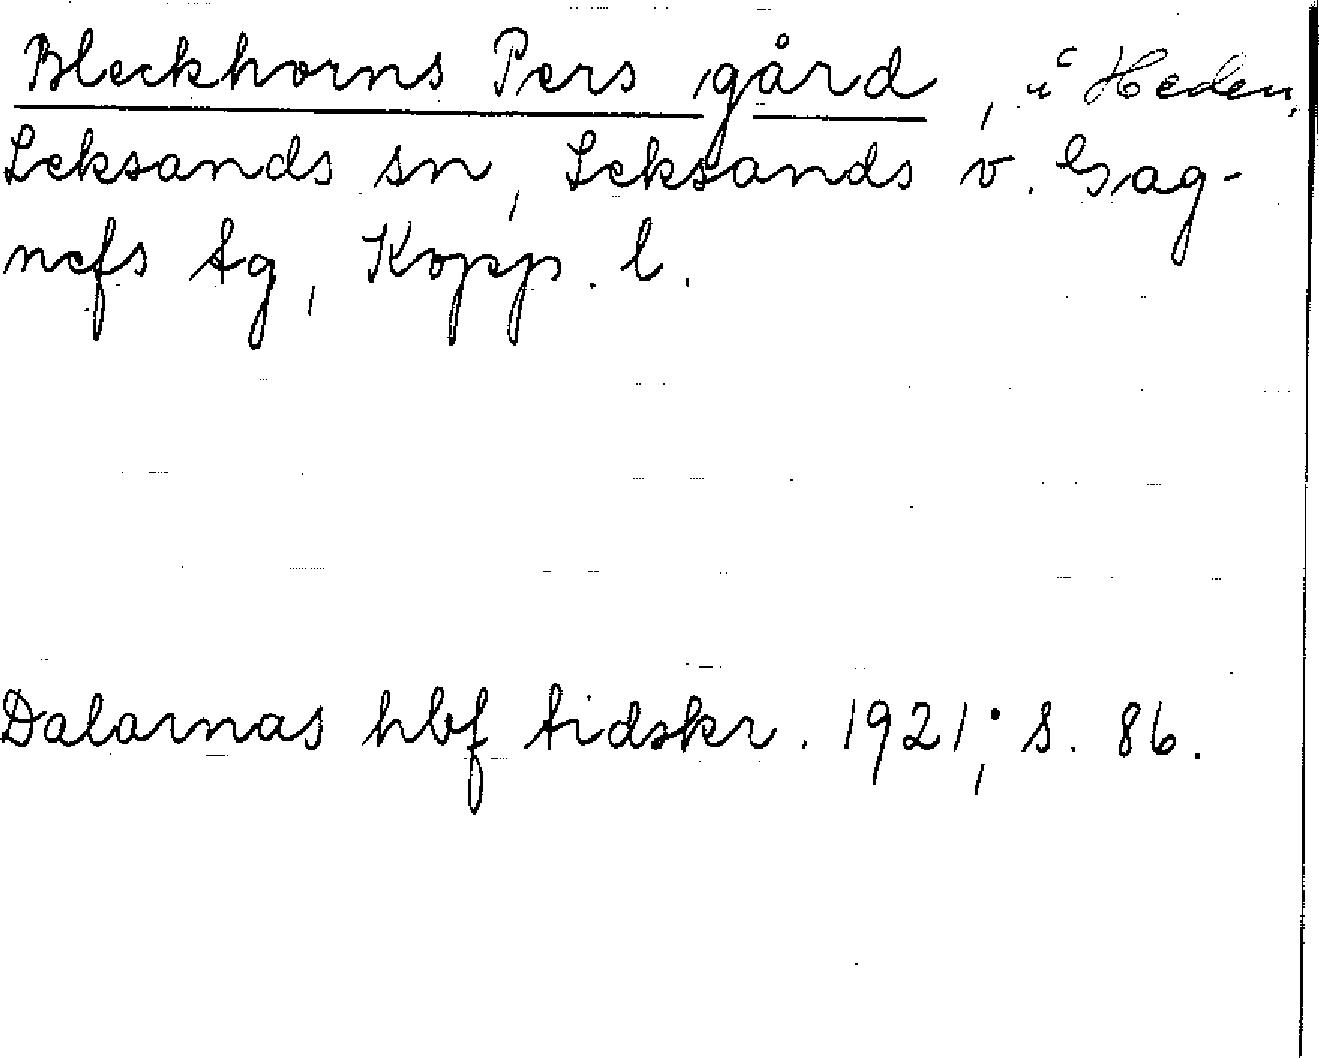 Bleckhorns Pers gård, i Heden,
Leksands sn, Leksands v. Gag-
nefs tg, Kopp. l.
Dalarnas hbf tidskr. 1921; s. 86.